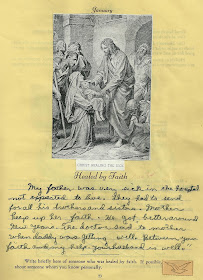 January
CHRIST HEALING THE SICK
Healed by Faith
My father was very sick in the hospital
not expected to live. They had to send
for all his brothers and sisters. Mother
keeps up her faith. He got better around
New Years. The doctor said to mother
when daddy was getting well. Between your
faith and my help your husband is well."
Write briefly here of someone who was healed by faith. If possible
about someone whom you know personally.